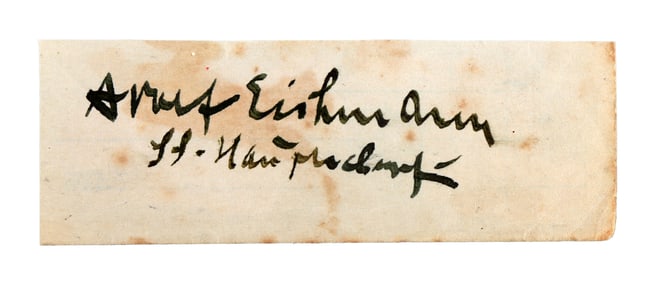 Adolf Eichmann
SS-Hauptscharf.